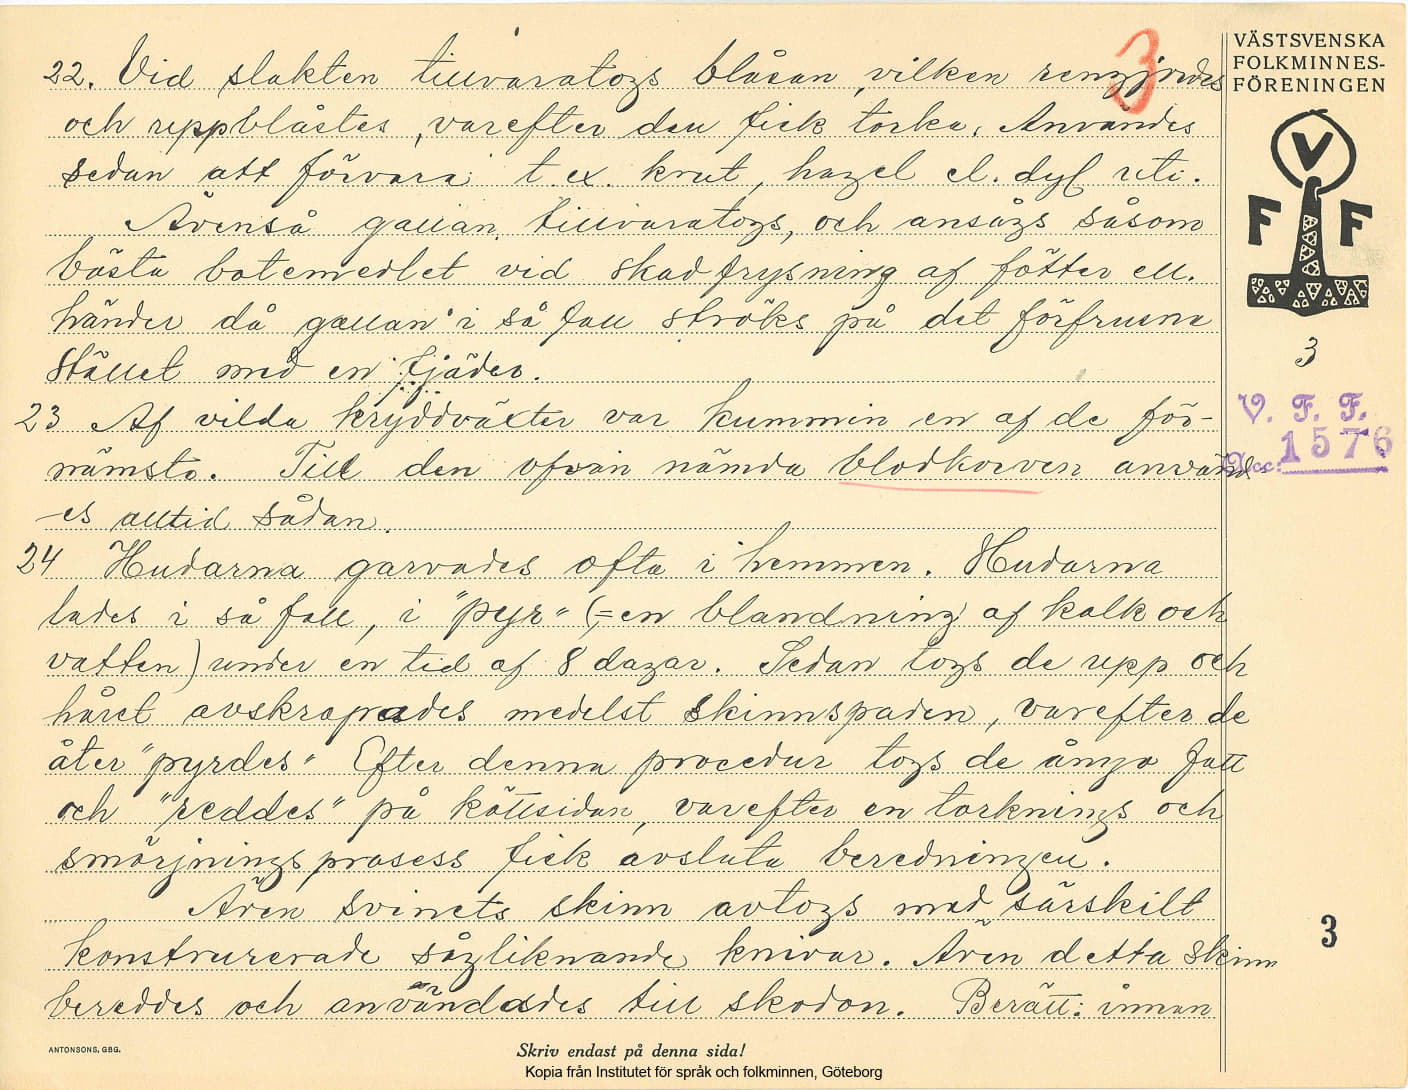 3
VÄSTSVENSKA
FOLKMINNES-
FÖRENINGEN
V
F F
3
V. F. F.
Acc: 1576
22. Vid slakten tillvaratogs blåsan, vilken rengjordes
och uppblåstes, varefter den fick torka. Användes
sedan att förvara t. ex. krut, hagel el. dyl uti.
Ävenså gallan tillvaratogs, och ansågs såsom
bästa botemedlet vid skadfrysning af fötter ell.
händer då gallan i så fall ströks på det förfrusna
stället med en fjäder.
23 Af vilda kryddväxter var kummin en af de för-
nämsta. Till den ofvan nämda blodkorven använd-
es alltid sådan.
24 Hudarna garvades ofta i hemmen. Hudarna
lades i så fall, i "pyr" (=en blandning af kalk och
vatten) under en tid af 8 dagar. Sedan togs de upp och
håret avskrapades medelst skinnspaden, varefter de
åter "pyrdes" Efter denna procedur togs de ånyo fatt
och "reddes" på köttsidan, varefter en torknings och
smörjningsprosess fick avsluta beredningen.
Även svinets skinn avtogs med särskilt
konstruerade sågliknande knivar. Även detta skinn
bereddes och användes till skodon. Berätt: innan
3
ANTONSONS, GBG.
Skriv endast på denna sida!
Kopia från Institutet för språk och folkminnen, Göteborg